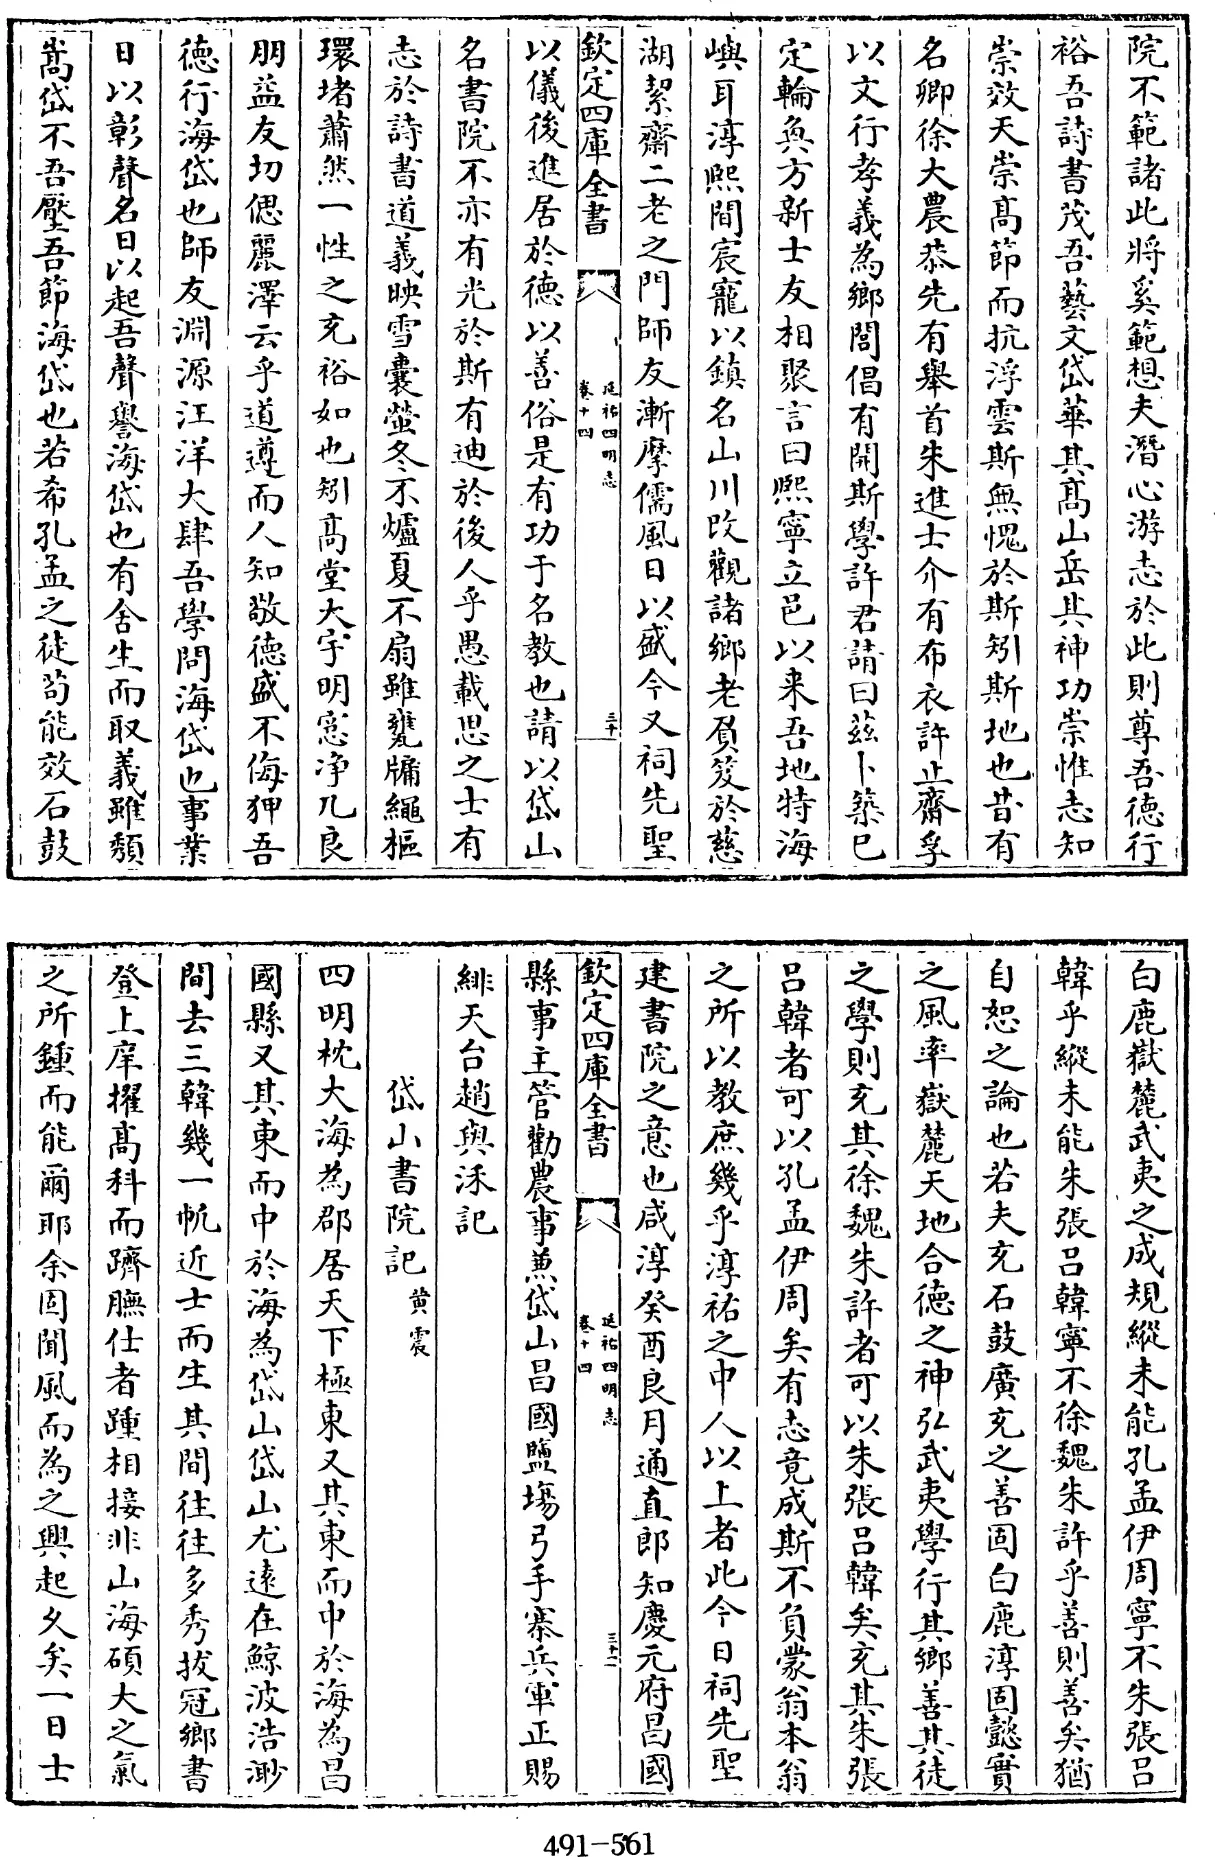 院不範諸此將奚範想夫潛心游志於此則尊吾德行
裕吾詩書茂吾藝文岱華其髙山岳其神功崇惟志知
崇效天崇髙節而抗浮雲斯無愧於斯矧斯地也昔有
名卿徐大農恭先有舉首朱進士介有布衣許止齋孚
以文行孝義為鄉閭倡有開斯學許君請曰兹卜築已
定輪奐方新士友相聚言曰熙寧立邑以来吾地特海
嶼耳淳熙間宸寵以鎮名山川改觀諸鄉老負笈於慈
湖絜齋二老之門師友漸摩儒風日以盛今又祠先聖
欽定四庫全書
延祐四明志
卷十四
三十
以儀後進居於德以善俗是有功于名教也請以岱山
名書院不亦有光於斯有迪於後人乎愚載思之士有
志於詩書道義映雪囊螢冬不爐夏不扇雖甕牖繩樞
環堵蕭然一性之充裕如也矧髙堂大宇明窓净几良
朋益友切偲麗澤云乎道遵而人知敬德盛不侮狎吾
德行海岱也師友淵源汪洋大肆吾學問海岱也事業
日以彰聲名日以起吾聲譽海岱也有舍生而取義雖頽
嵩岱不吾壓吾節海岱也若希孔孟之徒茍能效石鼓
白鹿嶽麓武夷之成規縱未能孔孟伊周寧不朱張吕
韓乎縱未能朱張吕韓寧不徐魏朱許乎善則善矣猶
自恕之論也若夫充石鼓廣充之善固白鹿淳固懿實
之風率嶽麓天地合德之神弘武夷學行其鄉善其徒
之學則充其徐魏朱許者可以朱張吕韓矣充其朱張
吕韓者可以孔孟伊周矣有志竟成斯不負蒙翁本翁
之所以教庶幾乎淳祐之中人以上者此今日祠先聖
建書院之意也咸淳癸酉良月通直郎知慶元府昌國
欽定四庫全書
延祐四明志
卷十四
三十一
縣事主管勸農事兼岱山昌國鹽塲弓手寨兵軍正賜
緋天台趙與泲記
岱山書院記 黄震
四明枕大海為郡居天下極東又其東而中於海為昌
國縣又其東而中於海為岱山岱山尤遠在鯨波浩渺
間去三韓幾一帆近士而生其間往往多秀拔冠鄉書
登上庠擢髙科而躋膴仕者踵相接非山海碩大之氣
之所鍾而能爾耶余固聞風而為之興起久矣一日士
491-561